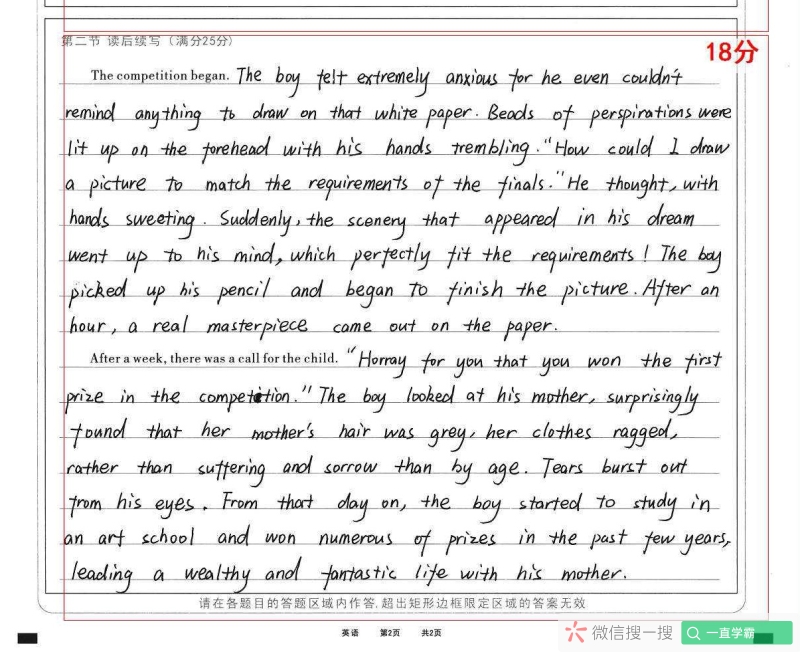 第二节 读后续写（满分25分）
18分
The competition began. The boy felt extremely anxious for he even couldn't
remind anything to draw on that white paper. Beads of perspirations were
lit up on the forehead with his hands trembling. "How could I draw
a picture to match the requirements of the finals." He thought, with
hands sweeting. Suddenly, the scenery that appeared in his dream
went up to his mind, which perfectly fit the requirements! The boy
picked up his pencil and began to finish the picture. After an
hour, a real masterpiece came out on the paper.
After a week, there was a call for the child. "Horray for you that you won the first
prize in the competition." The boy looked at his mother, surprisingly
found that her mother's hair was grey, her clothes ragged,
rather than suffering and sorrow than by age. Tears burst out
from his eyes. From that day on, the boy started to study in
an art school and won numerous of prizes in the past few years,
leading a wealthy and fantastic life with his mother.
请在各题目的答题区域内作答,超出矩形边框限定区域的答案无效
英语 第2页 共2页
微信搜一搜 一直学霸